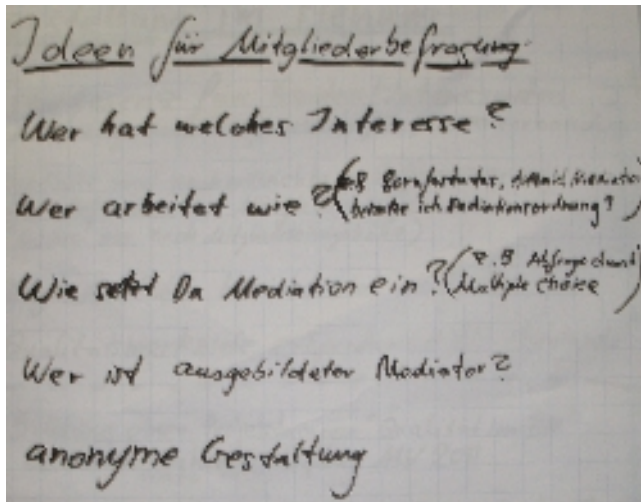 Ideen für Mitgliederbefragung
Wer hat welches Interesse?
Wer arbeitet wie? (z.B
ich Mediationsordnung?)
Wie setzt Du Mediation ein? (z.B Abfrage durch
Multiple choice)
Wer ist ausgebildeter Mediator?
anonyme Gestaltung